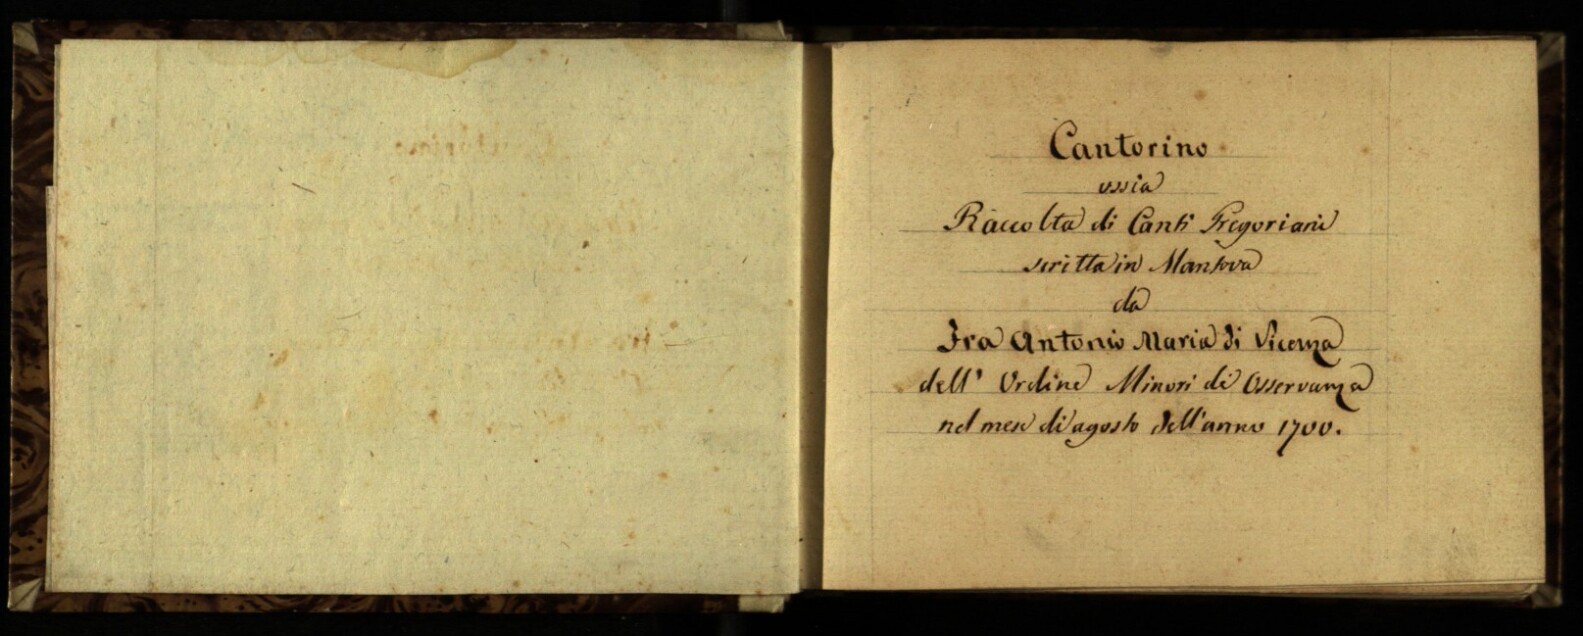 Cantorino
ossia
Raccolta di Canti Gregoriani
scritta in Mantova
da
Fra Antonio Maria di Vicenza
dell' Ordine Minori di Osservanza
nel mese di agosto dell'anno 1700.